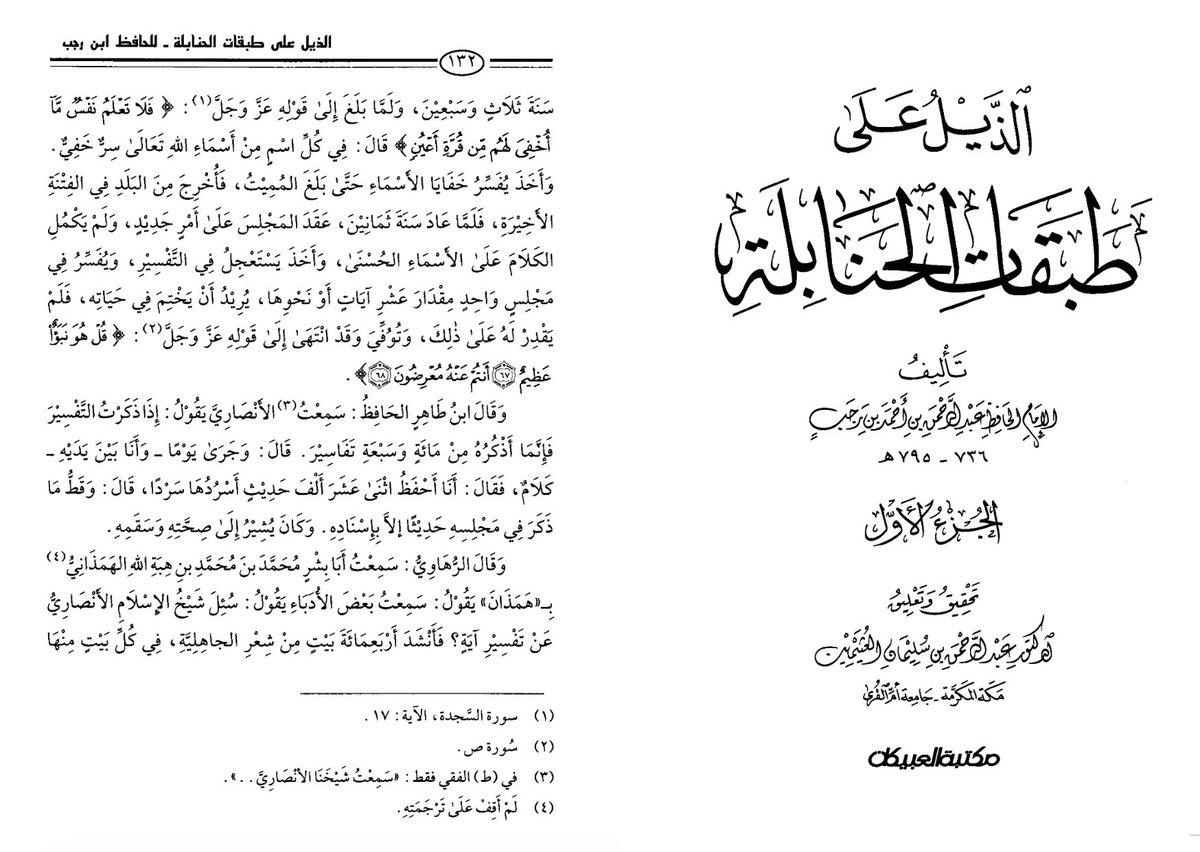 الذَّيْلُ عَلَى
طَبَقَاتِ الحَنَابِلَةِ
تَأْلِيفُ
الإِمَامِ الحَافِظِ عَبْدِ الرَّحْمَنِ بْنِ أَحْمَدَ بْنِ رَجَبٍ
٧٣٦ - ٧٩٥ هـ
الجُزْءُ الأَوَّل
تَحْقِيقُ وَتَعْلِيقُ
الدكتور عَبْدِ الرَّحْمَنِ بن سُلَيْمَان العُثَيْمِين
مكة المكرمة - جامعة أم القرى
مكتبة العبيكان
الذيل على طبقات الحنابلة - للحافظ ابن رجب
١٣٢
سَنَةَ ثَلَاثٍ وَسَبْعِيْنَ، وَلَمَّا بَلَغَ إِلَىٰ قَوْلِهِ عَزَّ وَجَلَّ(١): ﴿ فَلَا تَعْلَمُ نَفْسٌ مَّآ
أُخْفِيَ لَهُم مِّن قُرَّةِ أَعْيُنٍ﴾ قَالَ: فِي كُلِّ اسْمٍ مِنْ أَسْمَاءِ اللهِ تَعَالَىٰ سِرٌّ خَفِيٌّ.
وَأَخَذَ يُفَسِّرُ خَفَايَا الأَسْمَاءِ حَتَّىٰ بَلَغَ المُمِيْتُ، فَأُخْرِجَ مِنَ البَلَدِ فِي الفِتْنَةِ
الأَخِيْرَةِ، فَلَمَّا عَادَ سَنَةَ ثَمَانِيْنَ، عَقَدَ المَجْلِسَ عَلَىٰ أَمْرٍ جَدِيْدٍ، وَلَمْ يَكْمُلِ
الكَلَامَ عَلَىٰ الأَسْمَاءِ الحُسْنَىٰ، وَأَخَذَ يَسْتَعْجِلُ فِي التَّفْسِيْرِ، وَيُفَسِّرُ فِي
مَجْلِسٍ وَاحِدٍ مِقْدَارَ عَشْرِ آيَاتٍ أَوْ نَحْوِهَا، يُرِيْدُ أَنْ يَخْتِمَ فِي حَيَاتِهِ، فَلَمْ
يَقْدِرْ لَهُ عَلَىٰ ذٰلِكَ، وَتُوُفِّيَ وَقَدْ انْتَهَىٰ إِلَىٰ قَوْلِهِ عَزَّ وَجَلَّ(٢): ﴿ قُلْ هُوَ نَبَؤٌاْ
عَظِيمٌ ٦٧ أَنتُمْ عَنْهُ مُعْرِضُونَ ٦٨﴾.
وَقَالَ ابنُ طَاهِرٍ الحَافِظُ: سَمِعْتُ(٣) الأَنْصَارِيَّ يَقُوْلُ: إِذَا ذَكَرْتُ التَّفْسِيْرَ
فَإِنَّمَا أَذْكُرُهُ مِنْ مَائَةٍ وَسَبْعَةِ تَفَاسِيْرَ. قَالَ: وَجَرَىٰ يَوْمًا ـ وَأَنَا بَيْنَ يَدَيْهِ ـ
كَلَامٌ، فَقَالَ: أَنَا أَحْفَظُ اثْنَىٰ عَشَرَ أَلْفَ حَدِيْثٍ أَسْرُدُهَا سَرْدًا، قَالَ: وَقَطُّ مَا
ذَكَرَ فِي مَجْلِسِهِ حَدِيْثًا إِلاَّ بِإِسْنَادِهِ. وَكَانَ يُشِيْرُ إِلَىٰ صِحَّتِهِ وَسَقَمِهِ.
وَقَالَ الرُّهَاوِيُّ: سَمِعْتُ أَبَا بِشْرٍ مُحَمَّدَ بنَ مُحَمَّدِ بنِ هِبَةِ اللهِ الهَمَذَانِيَّ(٤)
بِـ«هَمَذَانَ» يَقُوْلُ: سَمِعْتُ بَعْضَ الأُدَبَاءِ يَقُوْلُ: سُئِلَ شَيْخُ الإِسْلَامِ الأَنْصَارِيُّ
عَنْ تَفْسِيْرِ آيَةٍ؟ فَأَنْشَدَ أَرْبَعَمِائَةَ بَيْتٍ مِنْ شِعْرِ الجَاهِلِيَّةِ، فِي كُلِّ بَيْتٍ مِنْهَا
(١) سورة السَّجدة، الآية: ١٧.
(٢) سُورة ص.
(٣) في (ط) الفقي فقط: «سَمِعْتُ شَيْخَنَا الأَنْصَارِيَّ..».
(٤) لَمْ أَقِفْ عَلَىٰ تَرْجَمَتِهِ.